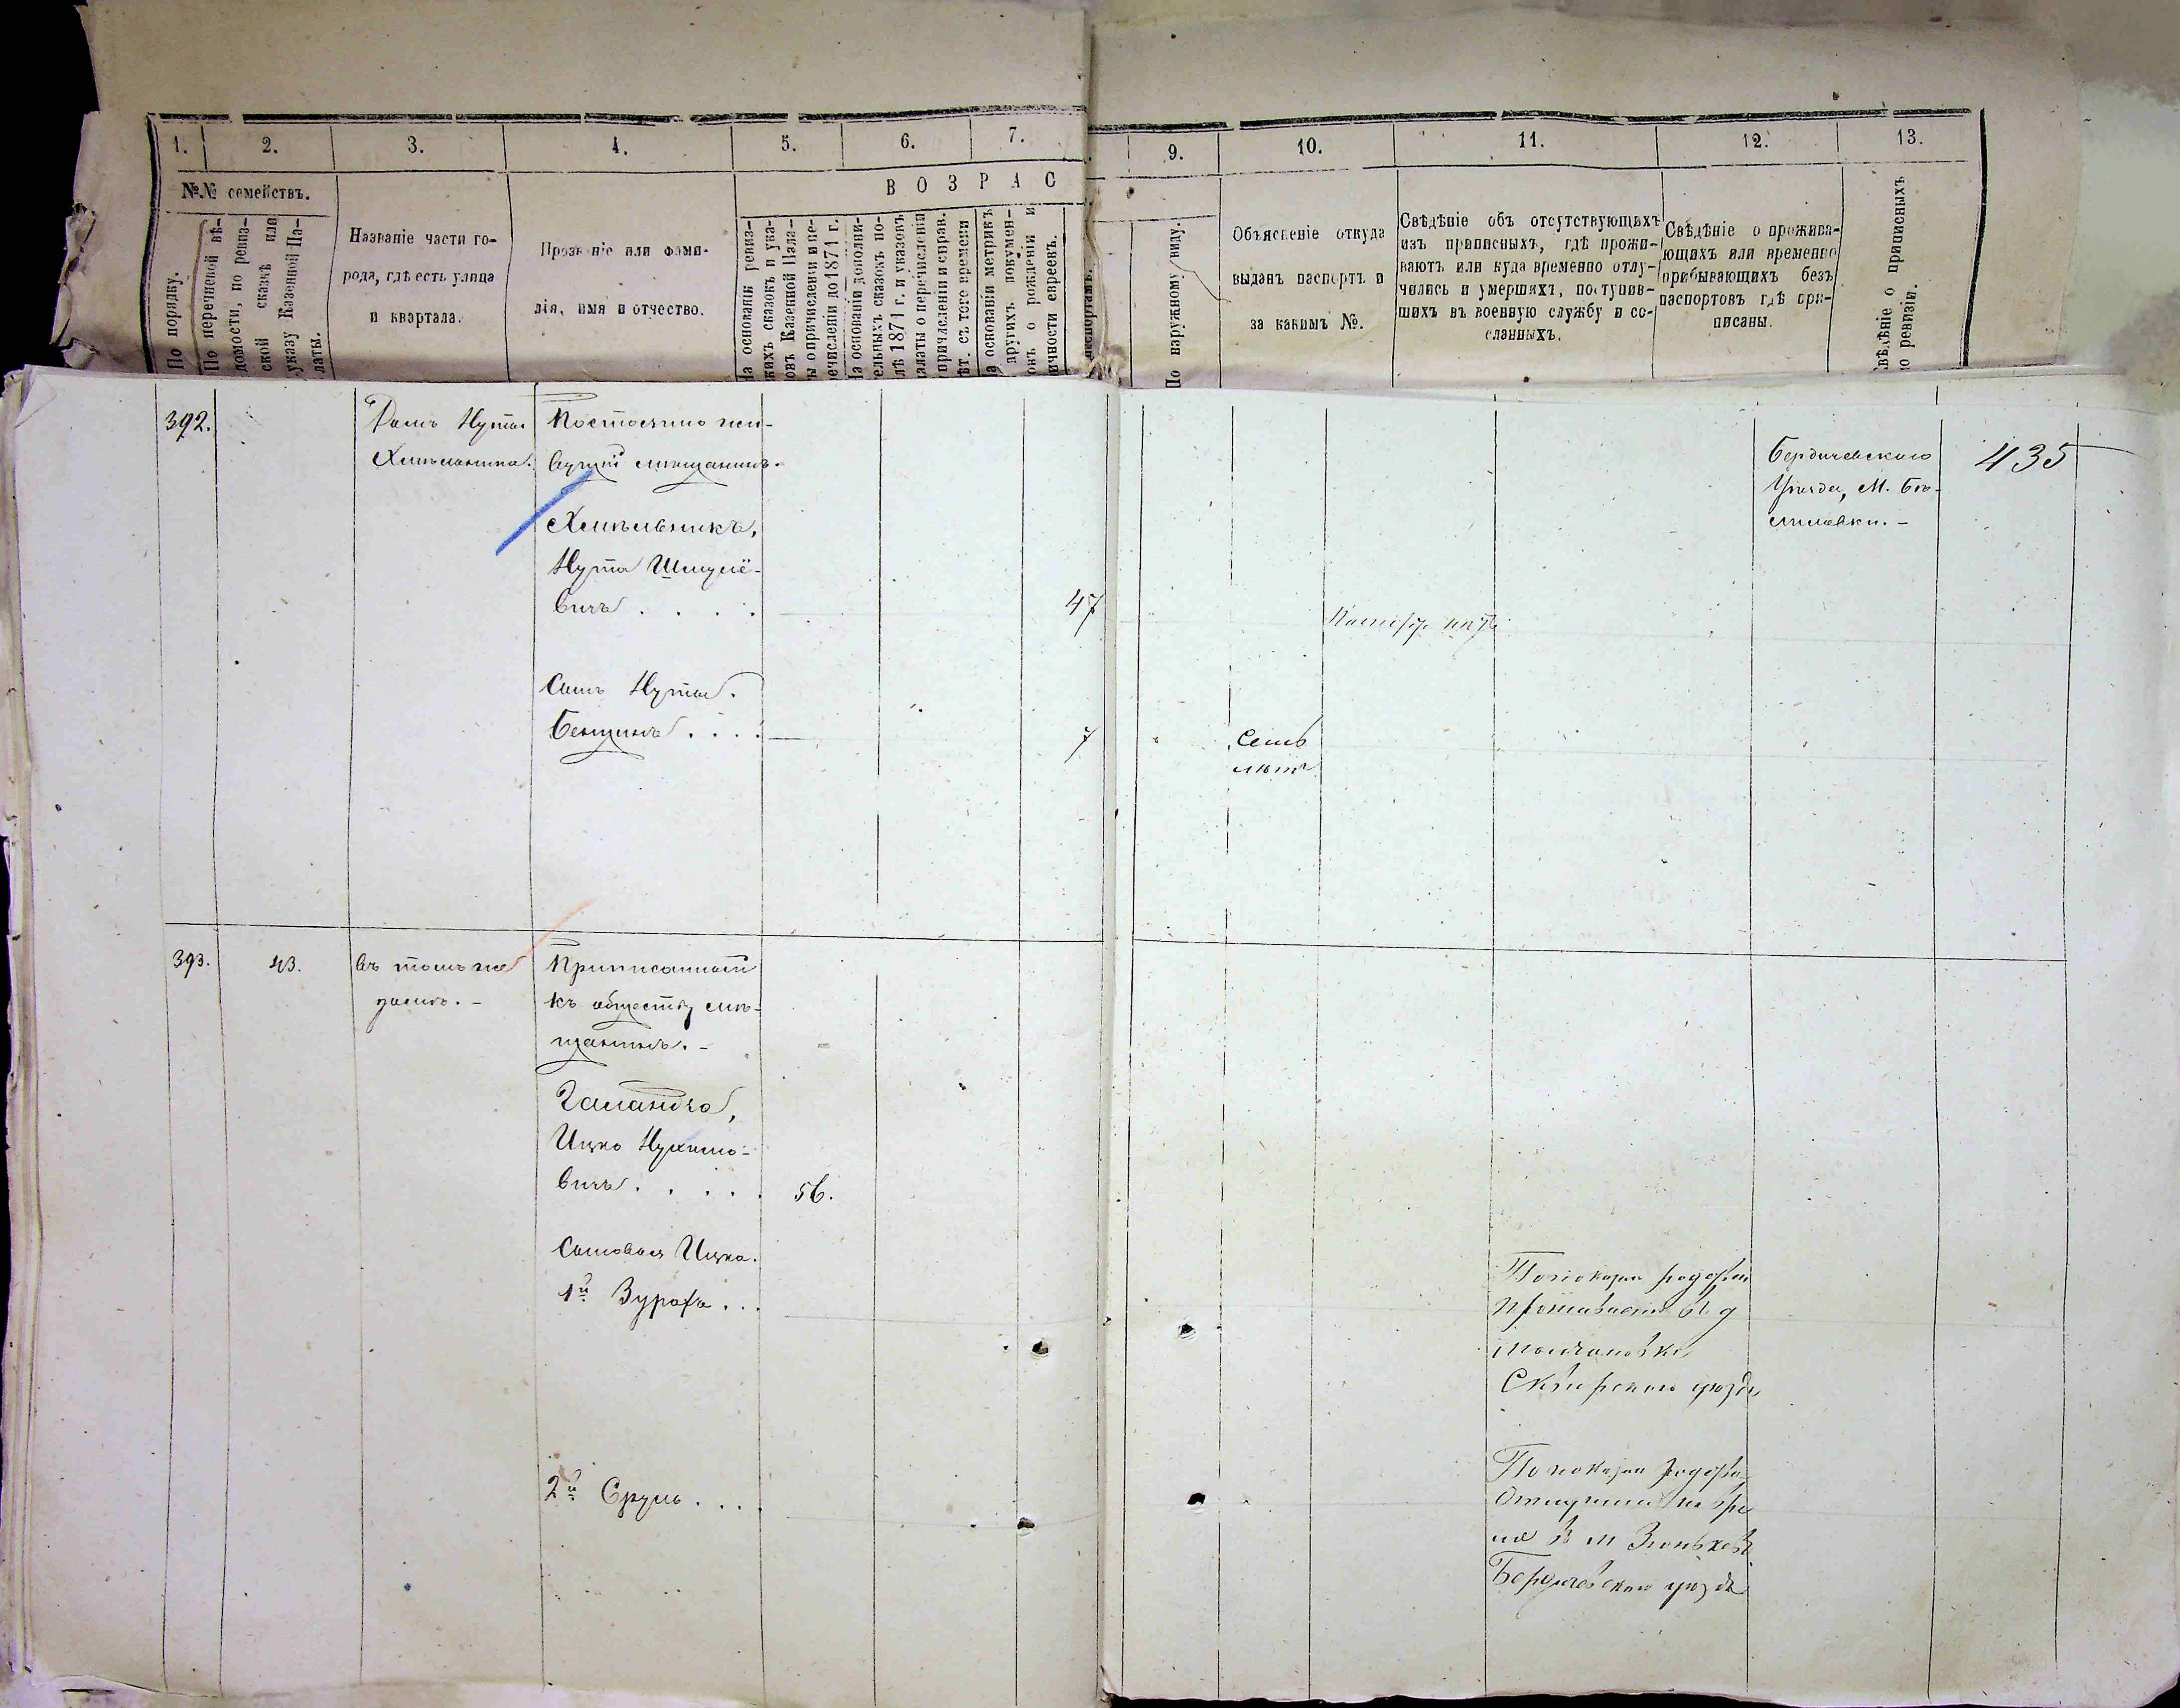 1.
2.
3.
4.
5.
6.
7.
9.
10.
11.
12.
13.
№№ семействъ.
В О З Р А С
По порядку.
По перечневой вѣ-
домости, по ревиз-
ской сказкѣ или
указу Казенной Па-
латы.
Названіе части го-
рода, гдѣ есть улица
и квартала.
Прозваніе или фами-
лія, имя и отчество.
На основаніи ревиз-
скихъ сказокъ и ука-
зовъ Казенной Пала-
ты о причисленіи и пе-
речисленіи до 1871 г.
На основаніи дополни-
тельныхъ сказокъ по-
слѣ 1871 г. и указовъ
палаты о перечисленіи
причисленіи и справ.
лѣт. съ того времени
На основаніи метрикъ
другихъ докумен-
товъ о рожденіи и
личности евреевъ.
паспортамъ.
По наружному виду.
Объясненіе откуда
выданъ паспортъ и
за какимъ №.
Свѣдѣніе объ отсутствующихъ
изъ приписныхъ, гдѣ прожи-
ваютъ или куда временно отлу-
чились и умершихъ, поступив-
шихъ въ военную службу и со-
сланныхъ.
Свѣдѣніе о прожива-
ющихъ или временно
прибывающихъ безъ
паспортовъ гдѣ при-
писаны.
Свѣдѣніе о приписныхъ
по ревизіи.
392.
Домъ Нута
Хмѣльника.
Постоянно жи-
вущій мѣщанинъ.
Хмѣльникъ,
Нута Шмулё-
вичъ . . . .
47
Бердичевскаго
Уѣзда, М. Бѣ-
лиловки. –
435
Сынъ Нута.
Бенщинъ . . . .
7
Семь
лѣтъ
393.
43.
въ томъ же
домѣ. –
Приписанный
къ обществу мѣ-
щанинъ. –
Галандзъ,
Ицко Нухимо-
вичъ . . . . .
56.
Сыновья Ицка.
1й Зурахъ . . .
По показан
проживаетъ въ д
Молчановкѣ
Сквирскаго уѣзда
2й Сруль . . . .
По показан
въ м
Бердичевскаго уѣзда